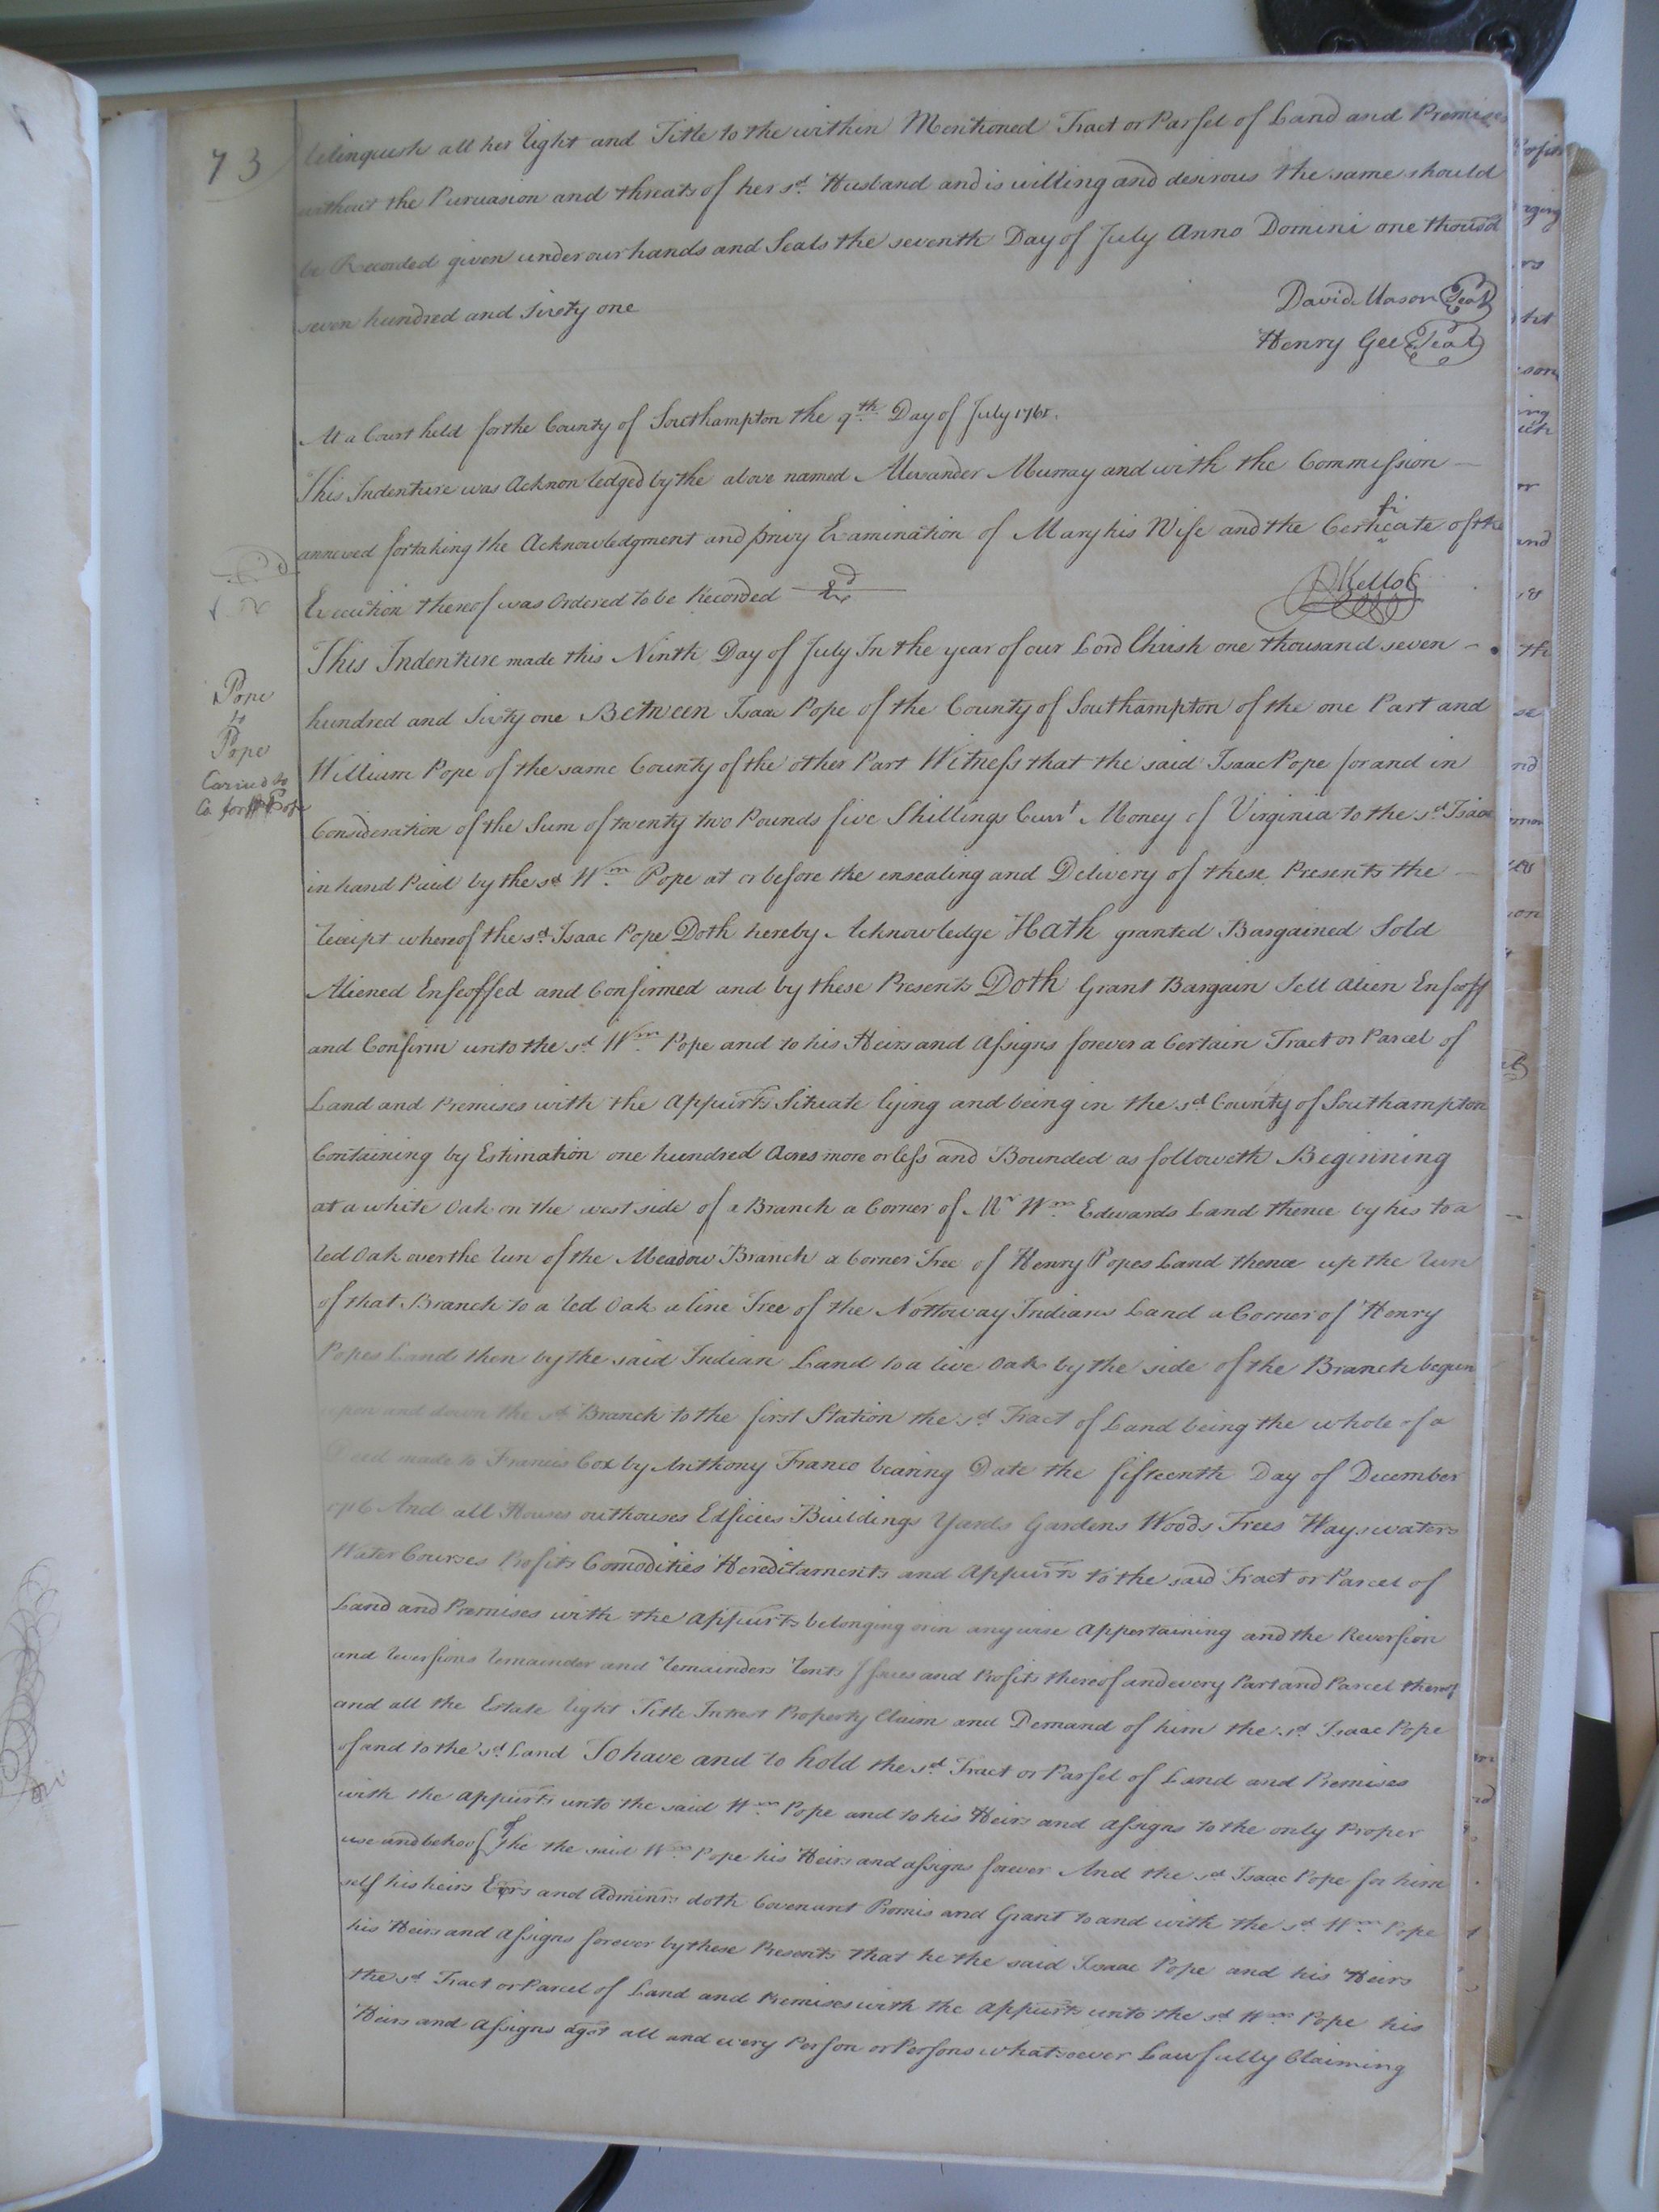 73
relinquish all her right and Title to the within Mentioned Tract or Parsel of Land and Premises
without the Pursuasion and threats of her sd. Husband and is willing and desirous the same should
be Recorded given under our hands and Seals the seventh Day of July Anno Domini one thousd
seven hundred and Sixty one
David Mason Seal
Henry Gee Seal
At a Court held for the County of Southampton the 9th Day of July 1761.
This Indenture was Acknonledged by the above named Alexander Murray and with the Commission
annexed for taking the Acknowledgment and privy Examination of Mary his Wife and the Certificate of the
Execution thereof was Ordered to be Recorded
RKello C
Pope
to
Pope
Caried to
Co for Pope
This Indenture made this Ninth Day of July In the year of our Lord Christ one thousand seven
hundred and Sixty one Between Isaac Pope of the County of Southampton of the one Part and
William Pope of the same County of the other Part Witness that the said Isaac Pope for and in
Consideration of the Sum of twenty two Pounds five Shillings Currt Money of Virginia to the sd. Isaac
in hand Paid by the sd Wm. Pope at or before the ensealing and Delivery of these Presents the
receipt whereof the sd. Isaac Pope Doth hereby Acknowledge Hath granted Bargained Sold
Aliened Enfeoffed and Confirmed and by these Presents Doth Grant Bargain Sell Alien Enfeoff
and Confirm unto the sd. Wm. Pope and to his Heirs and Assigns forever a Certain Tract or Parcel of
Land and Premises with the Appurts Situate lying and being in the sd. County of Southampton
Containing by Estimation one hundred Acres more or less and Bounded as followeth Beginning
at a white Oak on the west side of a Branch a Corner of Mr Wm. Edwards Land thence by his to a
red Oak over the run of the Meadow Branch a Corner Tree of Henry Popes Land thence up the run
of that Branch to a red Oak a line Tree of the Nottoway Indians Land a Corner of Henry
Popes Land then by the said Indian Land to a live Oak by the side of the Branch begun
upon and down the sd Branch to the first Station the sd. Tract of Land being the whole of a
Deed made to Francis Cox by Anthony Franco bearing Date the fifteenth Day of December
And all Houses outhouses Edficies Buildings Yards Gardens Woods Trees Ways waters
Water Courses Profits Comodities Hereditaments and Appurts to the said Tract or Parcel of
Land and Premises with the Appurts belonging or in any wise Appertaining and the Reversion
and reversions remainder and remainders rents Issues and Profits thereof and every Part and Parcel thereof
and all the Estate right Title Intrest Property Claim and Demand of him the sd. Isaac Pope
of and to the sd. Land To have and to hold the sd. Tract or Parsel of Land and Premises
with the appurts unto the said Wm. Pope and to his Heirs and Assigns to the only Proper
use and behoof of the the said Wm. Pope his Heirs and assigns forever And the sd. Isaac Pope for him
self his heirs Exrs and Adminrs doth Covenant Promis and Grant to and with the sd. Wm. Pope
his Heirs and Assigns forever by these Presents that he the said Isaac Pope and his Heirs
the sd. Tract or Parcel of Land and Premises with the Appurts unto the sd. Wm. Pope his
Heirs and Assigns agst all and every Person or Persons whatsoever Lawfully Claiming